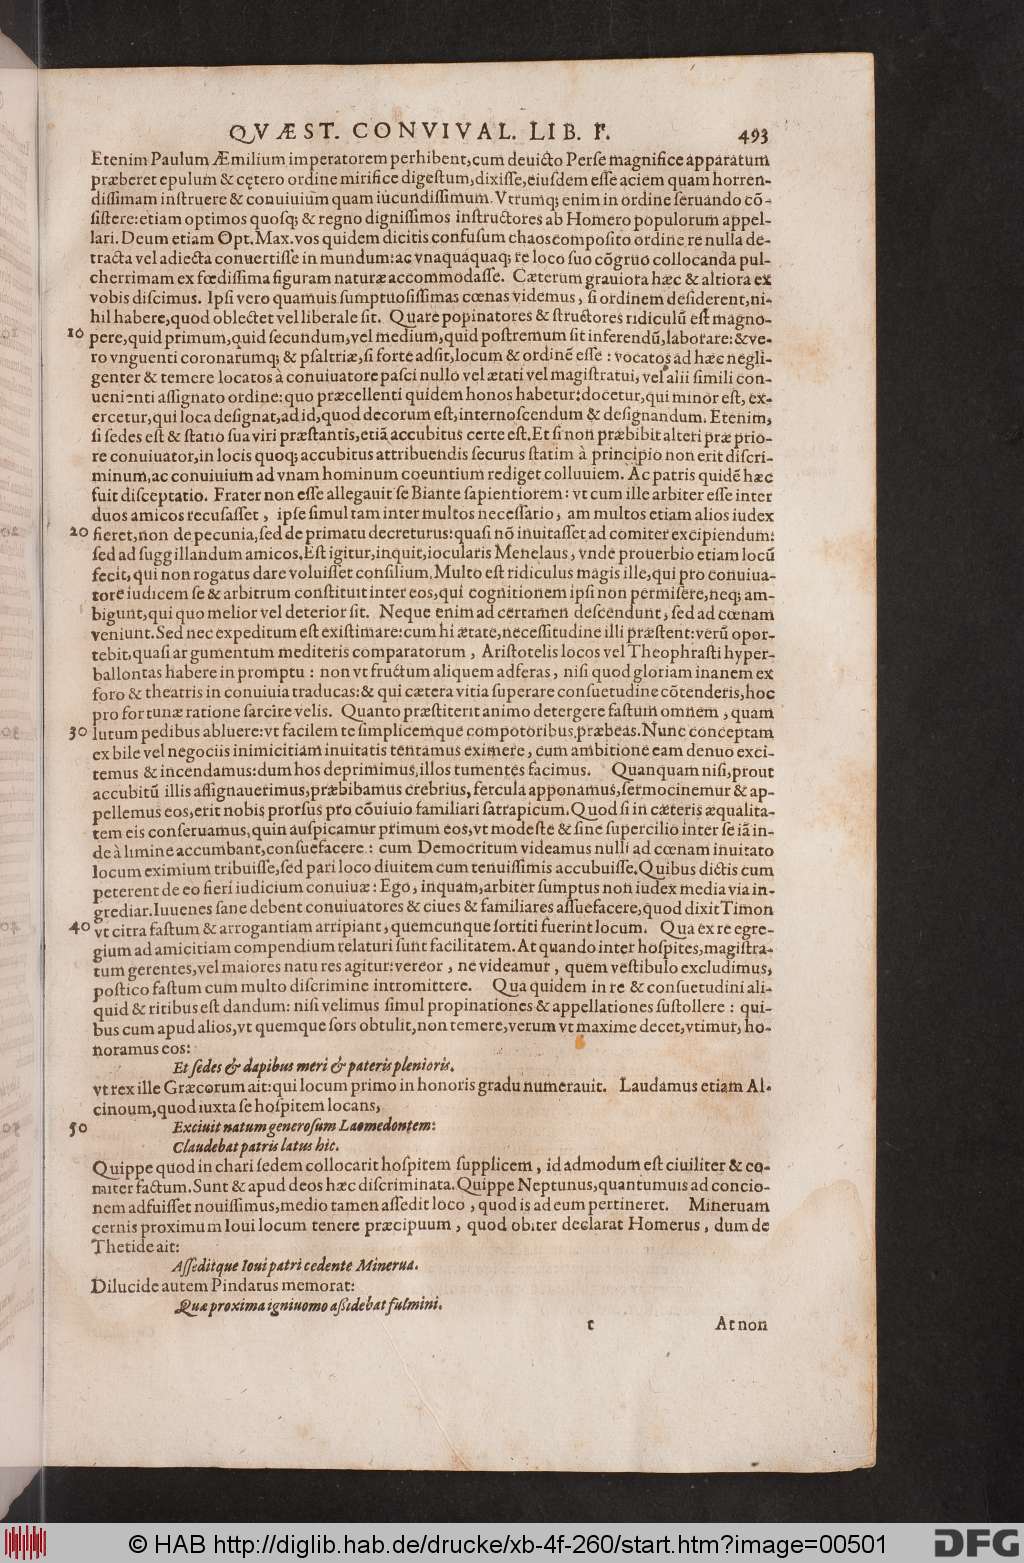 QVÆST. CONVIVAL. LIB. I. 493
Etenim Paulum Æmilium imperatorem perhibent, cum deuicto Perse magnifice apparatum
præberet epulum & cętero ordine mirifice digestum, dixisse, eiusdem esse aciem quam horren-
dissimam instruere & conuiuium quam iucundissimum. Vtrumq; enim in ordine seruando cō-
sistere: etiam optimos quosq; & regno dignissimos instructores ab Homero populorum appel-
lari. Deum etiam Opt. Max. vos quidem dicitis confusum chaos composito ordine re nulla de-
tracta vel adiecta conuertisse in mundum: ac vnaquáquaq; re loco suo cōgruo collocanda pul-
cherrimam ex fœdissima figuram naturæ accommodasse. Cæterum grauiora hæc & altiora ex
vobis discimus. Ipsi vero quamuis sumptuosissimas cœnas videmus, si ordinem desiderent, ni-
hil habere, quod oblectet vel liberale sit. Quare popinatores & structores ridiculū est magno-
10 pere, quid primum, quid secundum, vel medium, quid postremum sit inferendū, laborare: & ve-
ro vnguenti coronarumq; & psaltriæ, si forte adsit, locum & ordinē esse: vocatos ad hæc negli-
genter & temere locatos à conuiuatore pasci nullo vel ætati vel magistratui, vel alii simili con-
uenienti assignato ordine: quo præcellenti quidem honos habetur: docetur, qui minor est, ex-
ercetur, qui loca designat, ad id, quod decorum est, internoscendum & designandum. Etenim,
si sedes est & statio sua viri præstantis, etiā accubitus certe est. Et si non præbibit alteri præ prio-
re conuiuator, in locis quoq; accubitus attribuendis securus statim à principio non erit discri-
minum, ac conuiuium ad vnam hominum coeuntium rediget colluuiem. Ac patris quidē hæc
fuit disceptatio. Frater non esse allegauit se Biante sapientiorem: vt cum ille arbiter esse inter
duos amicos recusasset, ipse simul tam inter multos necessario, am multos etiam alios iudex
20 fieret, non de pecunia, sed de primatu decreturus: quasi nō inuitasset ad comiter excipiendum:
sed ad suggillandum amicos. Est igitur, inquit, iocularis Menelaus, vnde prouerbio etiam locū
fecit, qui non rogatus dare voluisset consilium. Multo est ridiculus magis ille, qui pro conuiua-
tore iudicem se & arbitrum constituit inter eos, qui cognitionem ipsi non permisere, neq; am-
bigunt, qui quo melior vel deterior sit. Neque enim ad certamen descendunt, sed ad cœnam
veniunt. Sed nec expeditum est existimare: cum hi ætate, necessitudine illi præstent: verū opor-
tebit, quasi argumentum mediteris comparatorum, Aristotelis locos vel Theophrasti hyper-
ballontas habere in promptu: non vt fructum aliquem adferas, nisi quod gloriam inanem ex
foro & theatris in conuiuia traducas: & qui cætera vitia superare consuetudine cōtenderis, hoc
pro fortunæ ratione sarcire velis. Quanto præstiterit animo detergere fastum omnem, quam
30 lutum pedibus abluere: vt facilem te simplicemque compotoribus præbeas. Nunc conceptam
ex bile vel negociis inimicitiam inuitatis tentamus eximere, cum ambitione eam denuo exci-
temus & incendamus: dum hos deprimimus, illos tumentes facimus. Quanquam nisi, prout
accubitū illis assignauerimus, præbibamus crebrius, fercula apponamus, sermocinemur & ap-
pellemus eos, erit nobis prorsus pro cōuiuio familiari satrapicum. Quod si in cæteris æqualita-
tem eis conseruamus, quin auspicamur primum eos, vt modeste & sine supercilio inter se iā in-
de à limine accumbant, consuefacere: cum Democritum videamus nulli ad cœnam inuitato
locum eximium tribuisse, sed pari loco diuitem cum tenuissimis accubuisse. Quibus dictis cum
peterent de eo fieri iudicium conuiuæ: Ego, inquam, arbiter sumptus non iudex media via in-
grediar. Iuuenes sane debent conuiuatores & ciues & familiares assuefacere, quod dixit Timon
40 vt citra fastum & arrogantiam arripiant, quemcunque sortiti fuerint locum. Qua ex re egre-
gium ad amicitiam compendium relaturi sunt facilitatem. At quando inter hospites, magistra-
tum gerentes, vel maiores natu res agitur: vereor, ne videamur, quem vestibulo excludimus,
postico fastum cum multo discrimine intromittere. Qua quidem in re & consuetudini ali-
quid & ritibus est dandum: nisi velimus simul propinationes & appellationes sustollere: qui-
bus cum apud alios, vt quemque sors obtulit, non temere, verum vt maxime decet, vtimur, ho-
noramus eos:
Et sedes & dapibus meri & pateris plenioris.
vt rex ille Græcorum ait: qui locum primo in honoris gradu numerauit. Laudamus etiam Al-
cinoum, quod iuxta se hospitem locans,
50 Exciuit natum generosum Laomedontem:
Claudebat patris latus hic.
Quippe quod in chari sedem collocarit hospitem supplicem, id admodum est ciuiliter & co-
miter factum. Sunt & apud deos hæc discriminata. Quippe Neptunus, quantumuis ad concio-
nem adfuisset nouissimus, medio tamen assedit loco, quod is ad eum pertineret. Mineruam
cernis proximum Ioui locum tenere præcipuum, quod obiter declarat Homerus, dum de
Thetide ait:
Asseditque Ioui patri cedente Minerua.
Dilucide autem Pindarus memorat:
Quæ proxima igniuomo assidebat fulmini.
t At non
© HAB http://diglib.hab.de/drucke/xb-4f-260/start.htm?image=00501 DFG